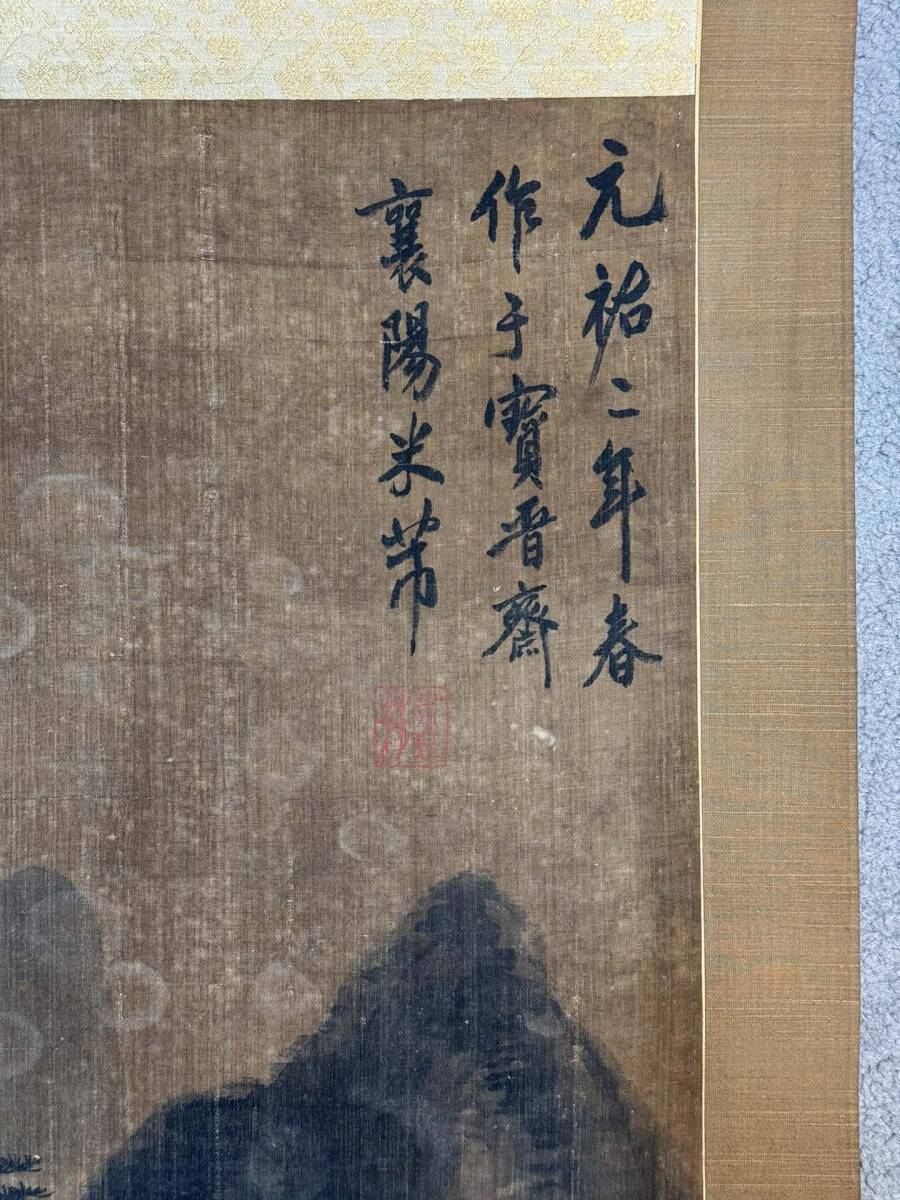 元祐二年春
作于寶晋齋
襄陽米芾